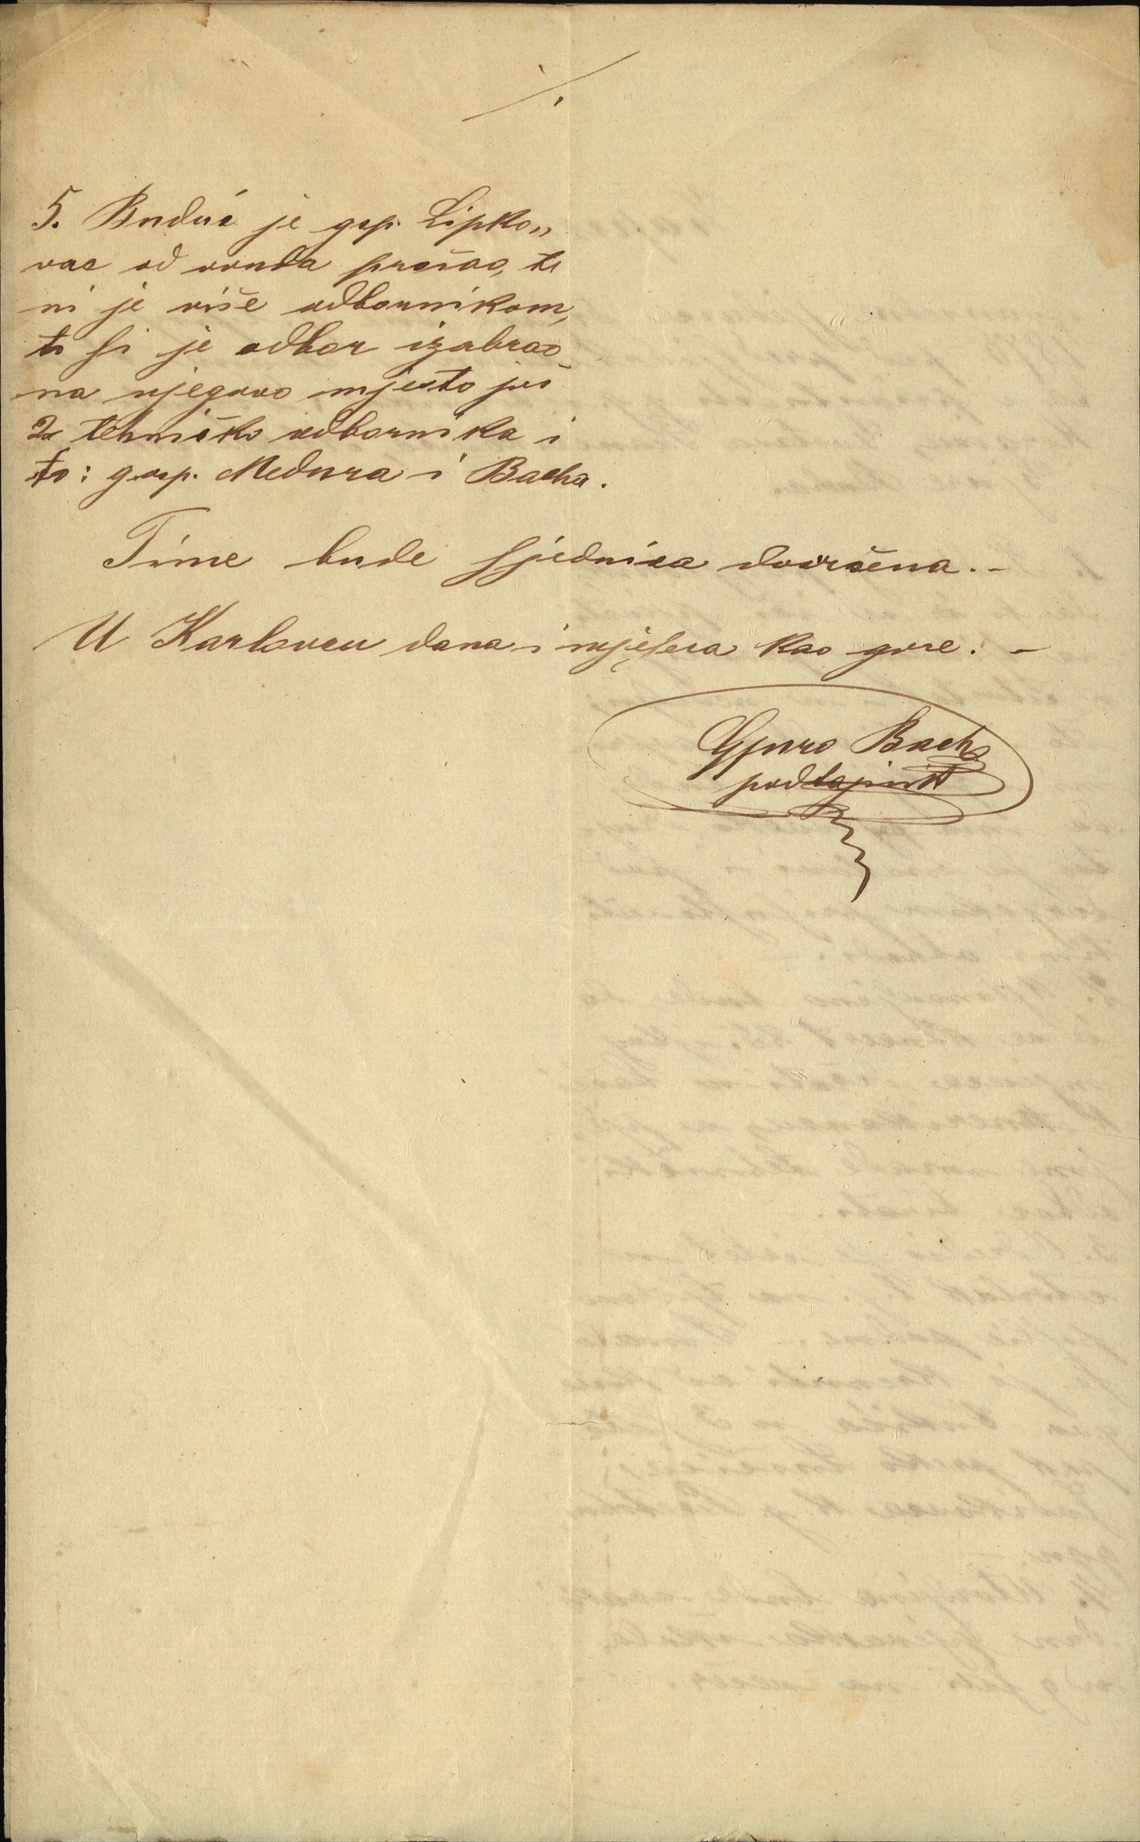 ./.
5. Buduć je gsp. Lipko„
vac od ovuda prošao, te
ni je više odbornikom,
to si je odbor izabrao
na njegovo mjesto još
2 tehničko odbornika i
to: gosp. Medura i Bacha.
Time bude sjednica dovršena. –
U Karlovcu dana i mjeseca kao gore. –
Gjuro Bach
podtajnik